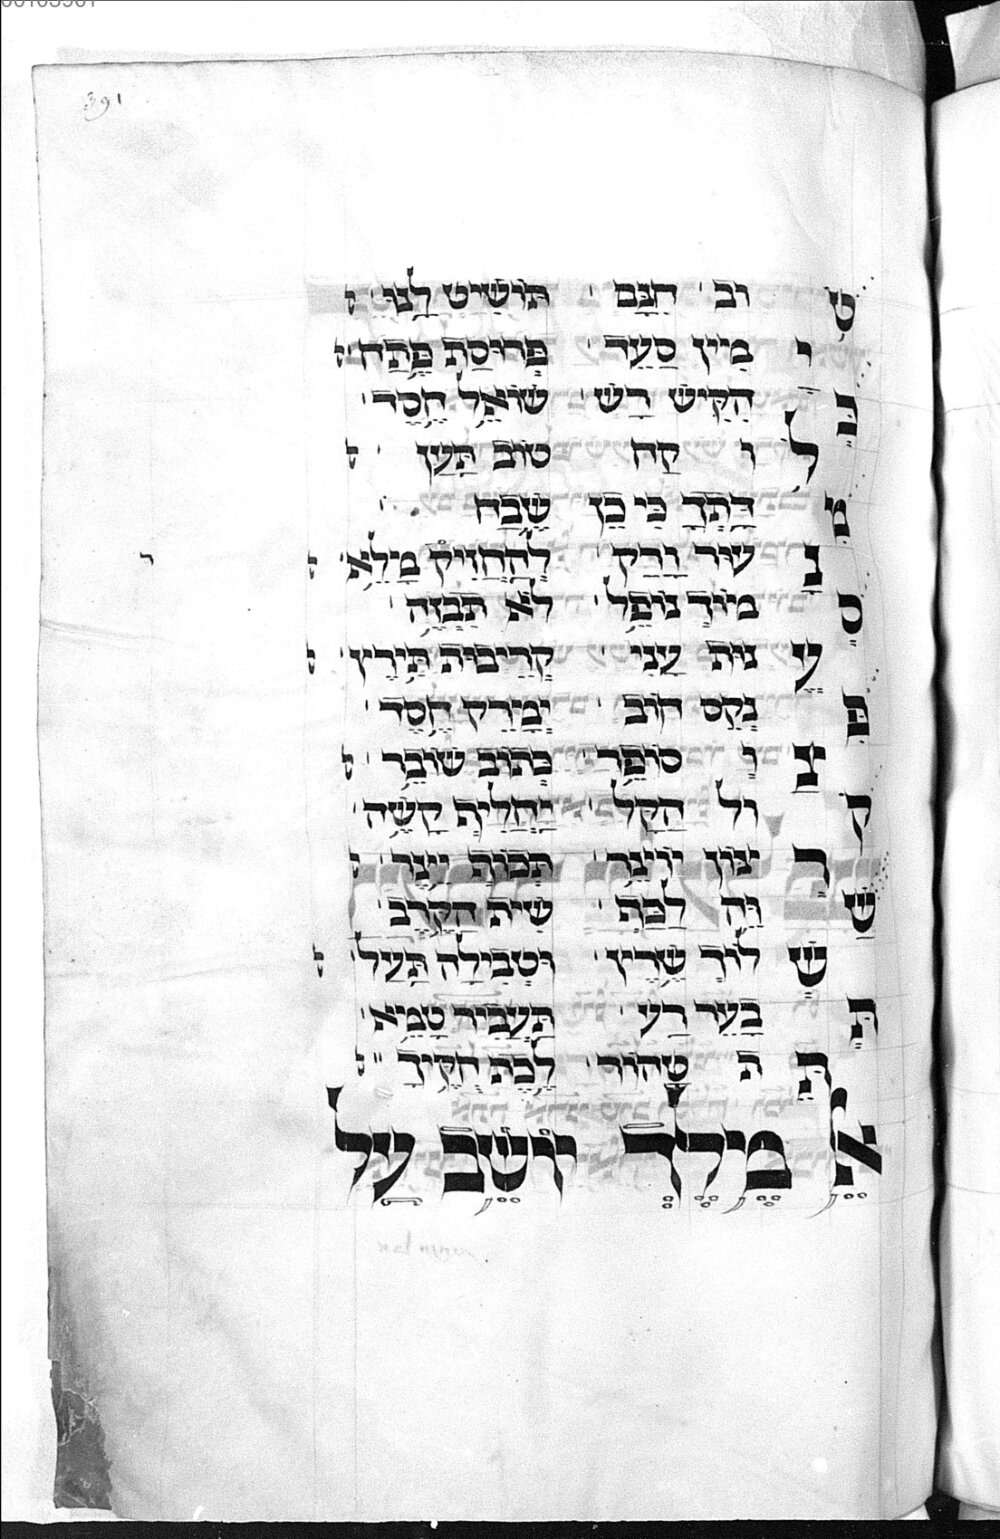 391
טוב חנם תושיט לנו:
ימין סער פרוסת פתח:
בהקיש רש שואל חסד
לו קח טוב תען:
מדתך כי כן שבח
נעור ורק להחזיק מלא:
סמוך נופל לא תבזה
ענות עני קרובות תירץ:
פנקס חוב ימרק חסד
צו סופר כתוב שובר:
קול הקל יחליף קשה
רצון יוצר תכוף ייצר:
שוה לבת שית הקרב
שלוך שרץ וטבילה תעל:
תבער רע תעביר טמא
תת טהור לבת חקיך:
אל מלך יושב על